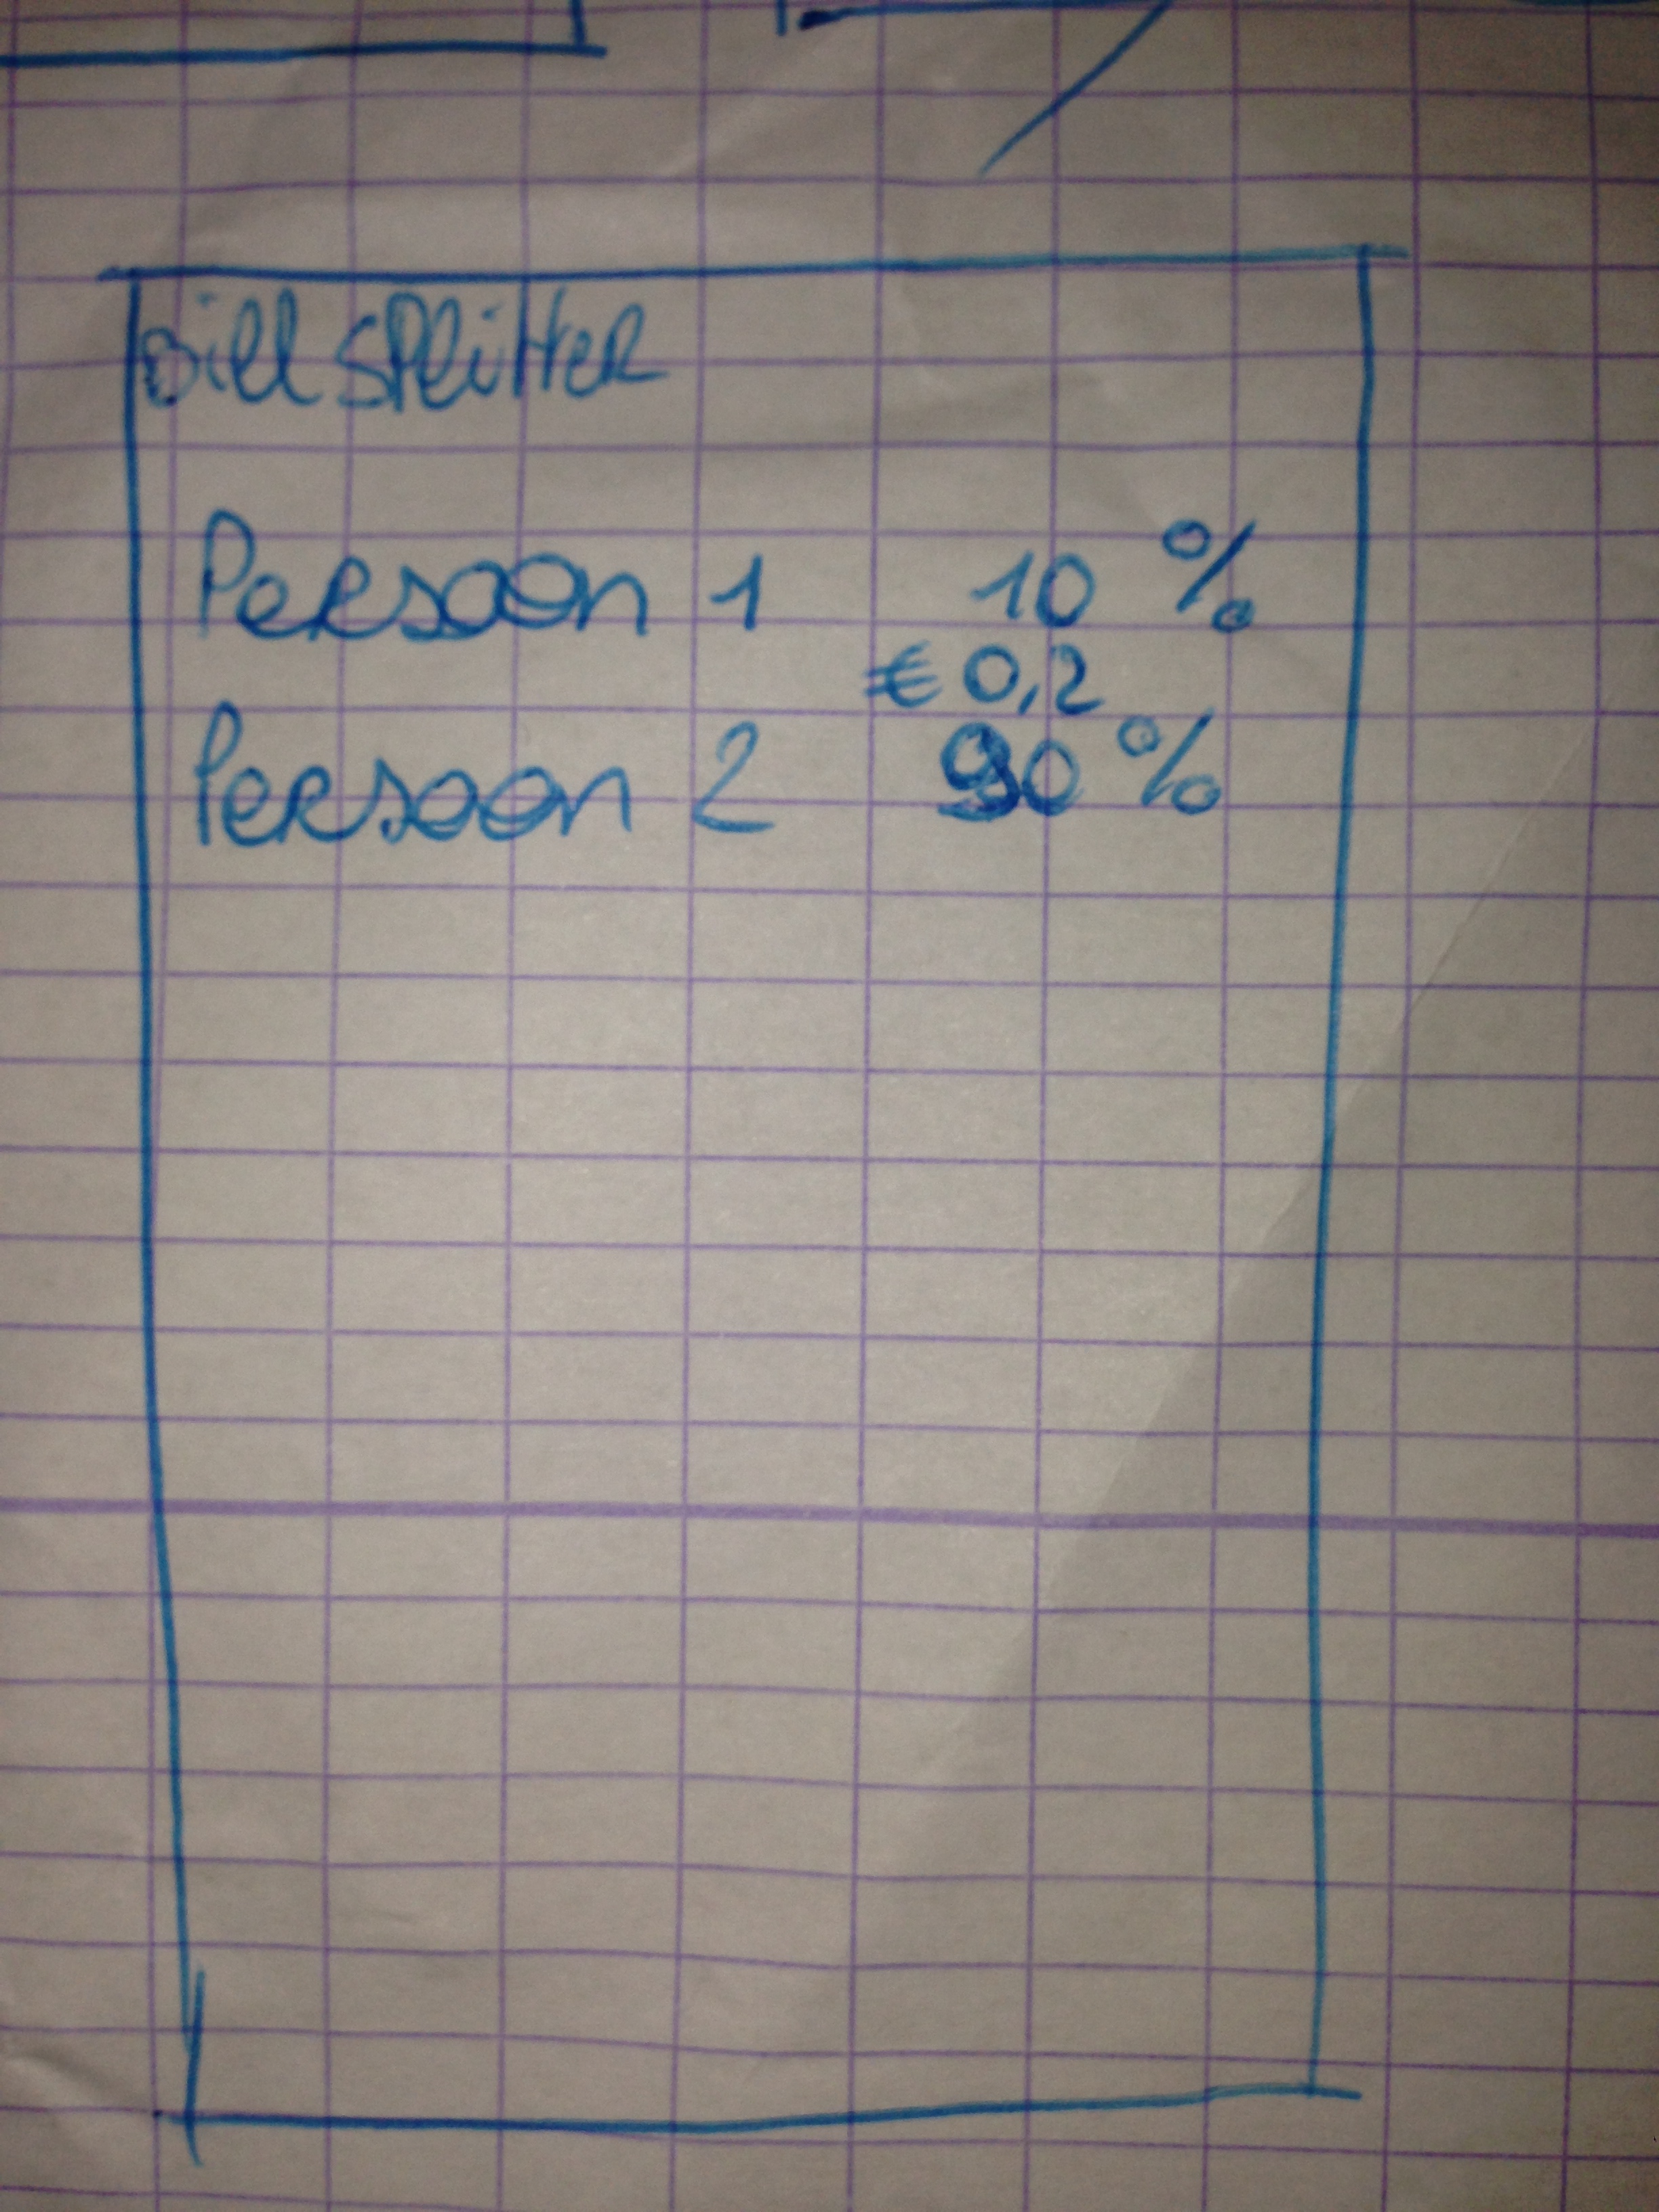 Bill splitter
Persoon 1 10 %
€ 0,2
Persoon 2 90 %